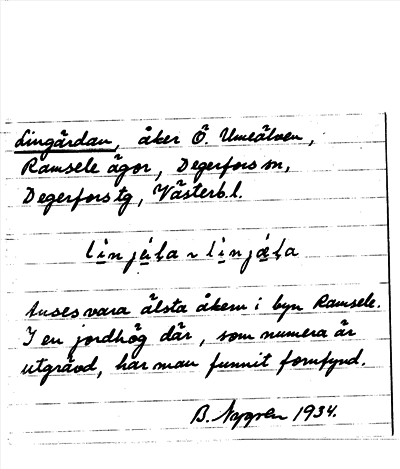 Lingärdan, åker Ö. Umeälven,
Ramsele ägor, Degerfors sn,
Degerfors tg, Västerb. l.
Anses vara älsta åkern i byn Ramsele.
I en jordhög där, som numera är
utgrävd, har man funnit fornfynd.
B. Nygren 1934.